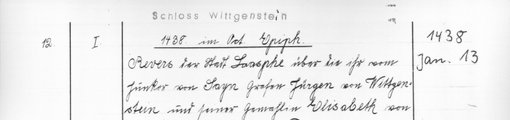 Schloss Wittgenstein
12 I 1438. im Oct. Epiph. 1438
Revers der Stadt Laasphe über die ihr vom Jan. 13
Junker von Sayn Grafen Jürgen von Wittgen-
stein und seiner Gemahlin Elisabeth von